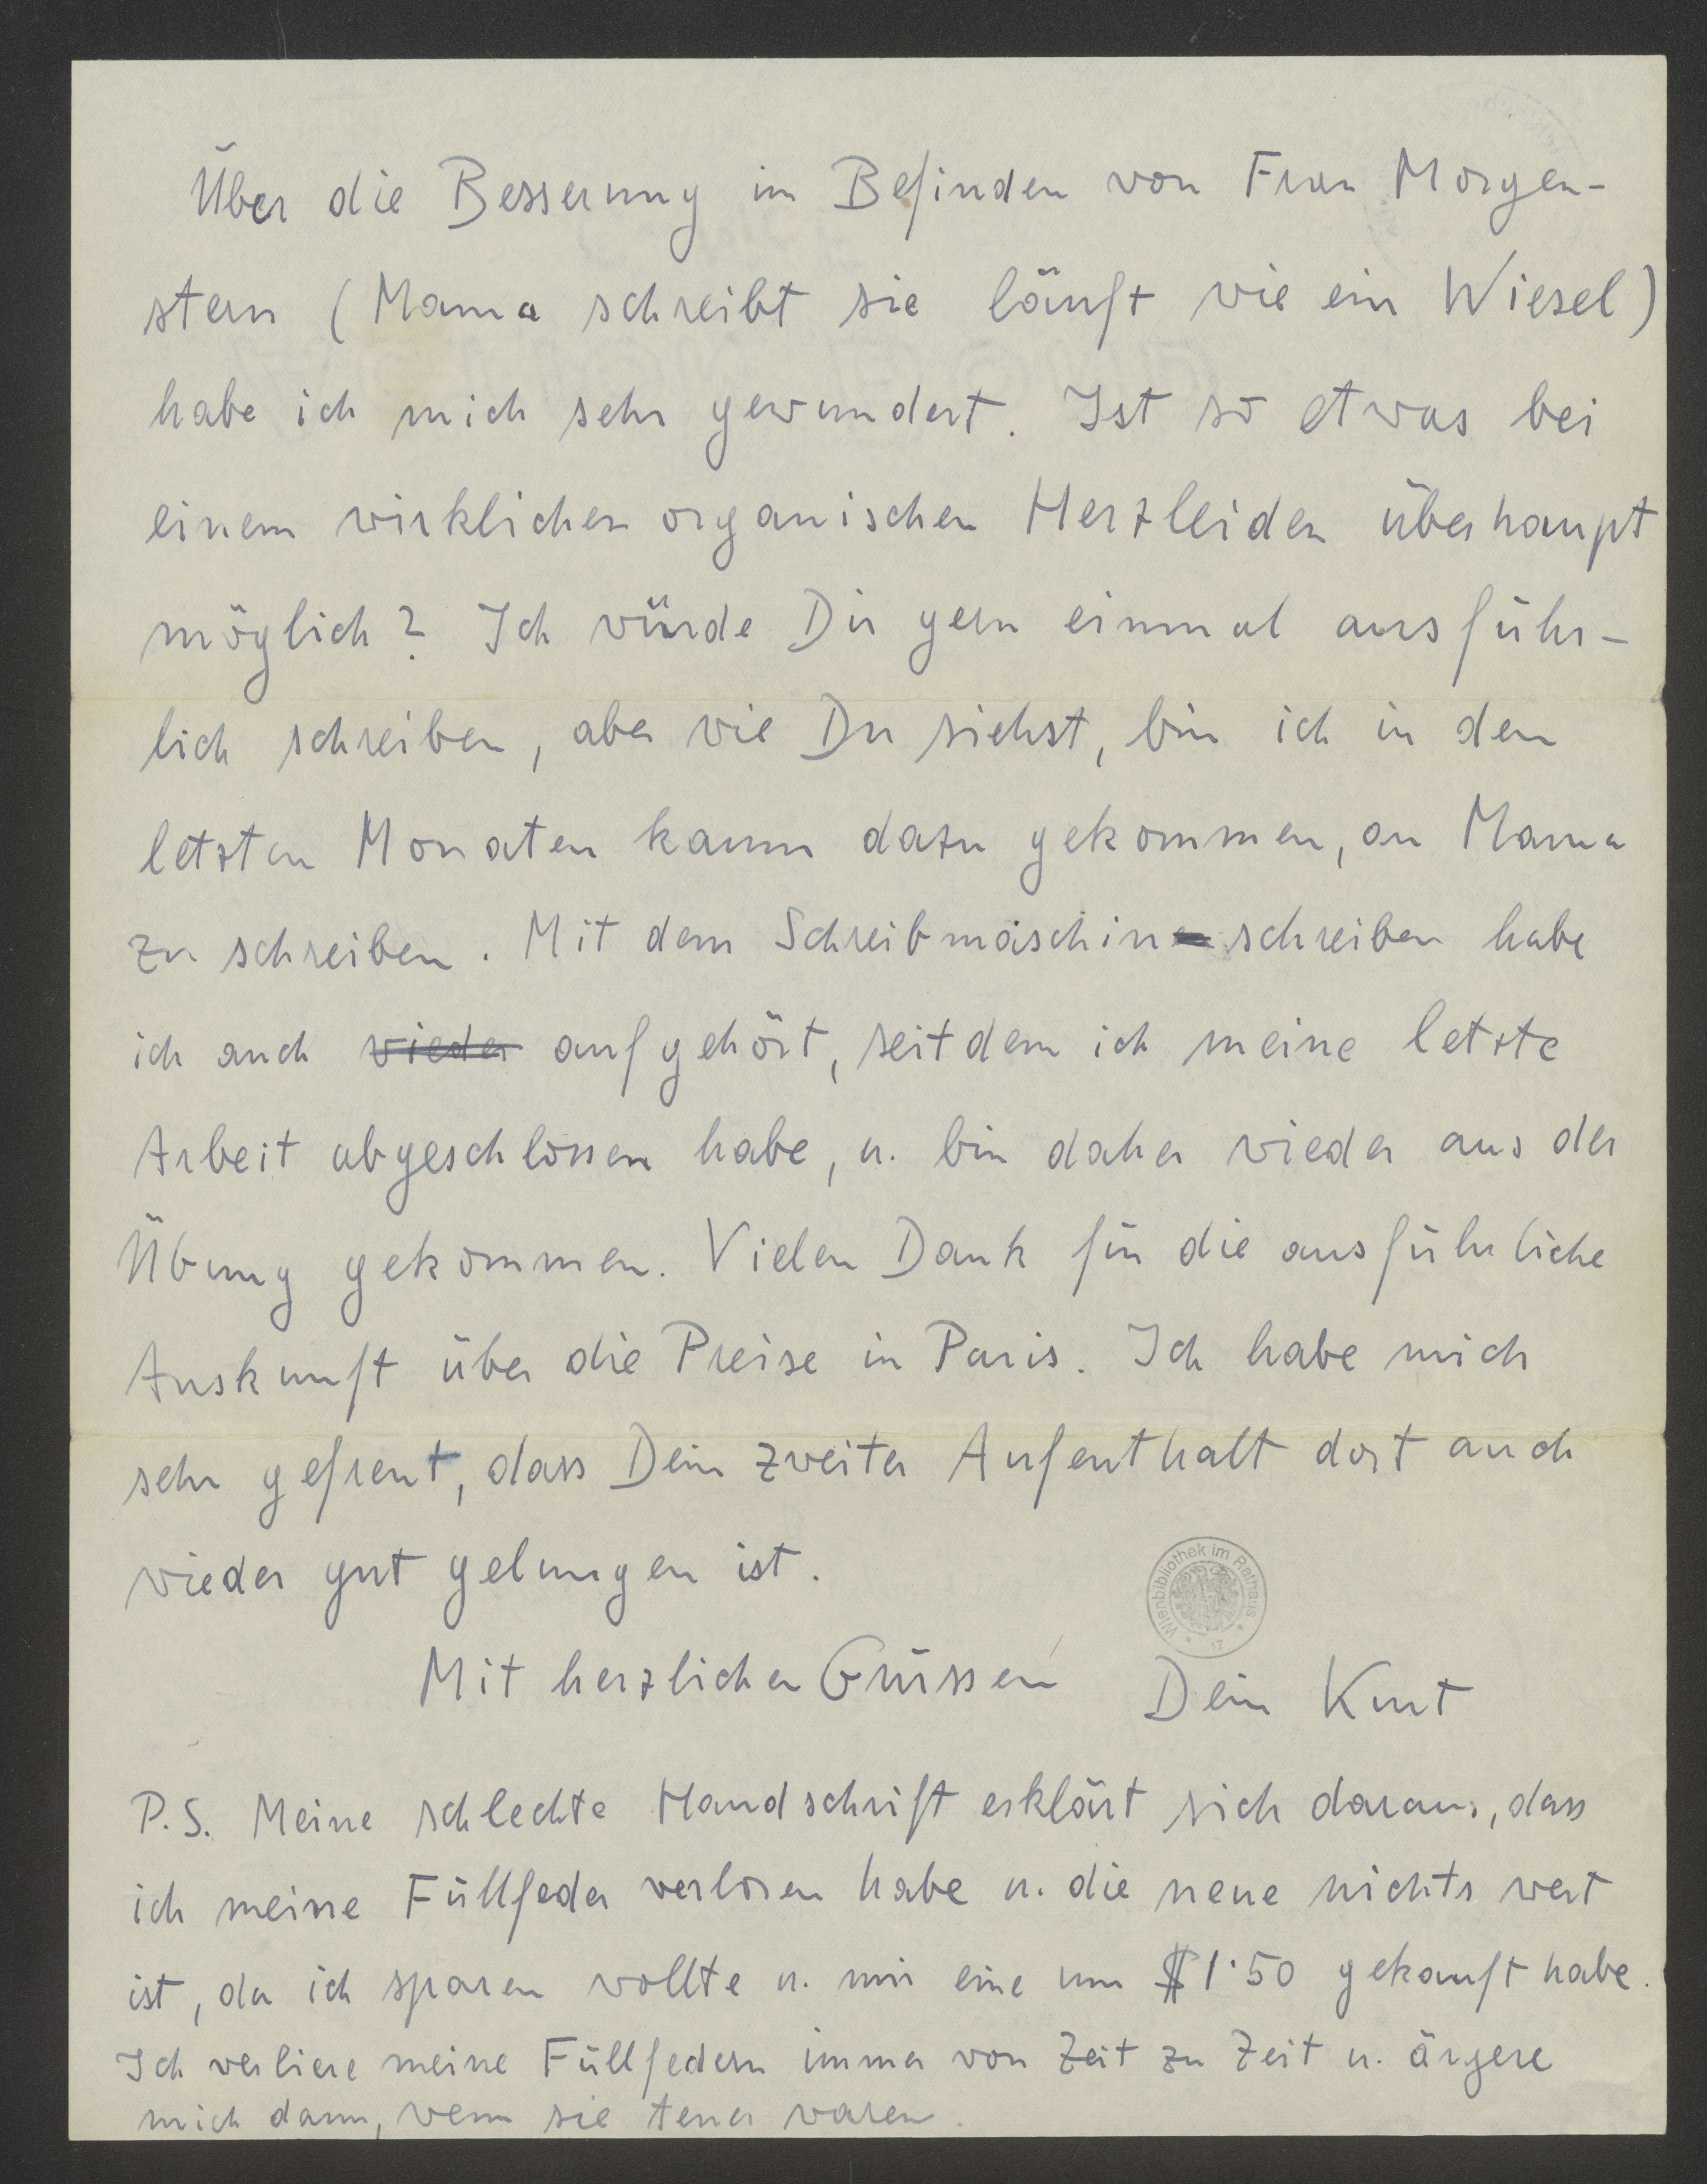 Über die Besserung im Befinden von Frau Morgen-
stern (Mama schreibt sie läuft wie ein Wiesel)
habe ich mich sehr gewundert. Ist so etwas bei
einem wirklichen organischen Herzleiden überhaupt
möglich? Ich würde Dir gern einmal ausführ-
lich schreiben, aber wie Du siehst, bin ich in den
letzten Monaten kaum dazu gekommen, an Mama
zu schreiben. Mit dem Schreibmaschinschreiben habe
ich auch wieder aufgehört, seitdem ich meine letzte
Arbeit abgeschlossen habe, u. bin daher wieder aus der
Übung gekommen. Vielen Dank für die ausführliche
Auskunft über die Preise in Paris. Ich habe mich
sehr gefreut, dass Dein zweiter Aufenthalt dort auch
wieder gut gelungen ist.
Wienbibliothek im Rathaus
17
Mit herzlichen Grüssen Dein Kurt
P.S. Meine schlechte Handschrift erklärt sich daraus, dass
ich meine Füllfeder verloren habe u. die neue nichts wert
ist, da ich sparen wollte u. mir eine um $1·50 gekauft habe.
Ich verliere meine Füllfedern immer von Zeit zu Zeit u. ärgere
mich dann, wenn sie teuer waren.